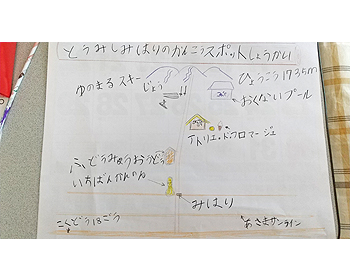 とうみしみはりのかんこうスポットしょうかい
ひょうこう1735m
ゆのまるスキーじょう
おくないプール
アトリエ・ド・フロマージュ
ふどうみょうおうどう
いちばんかんのん
みはり
こくどう18ごう
あさまサンライン